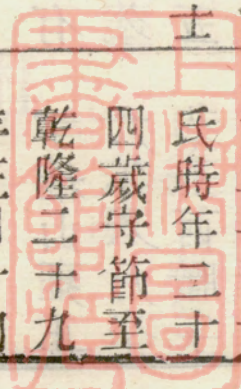 士
氏時年三十
四歲守節至
乾隆二十九